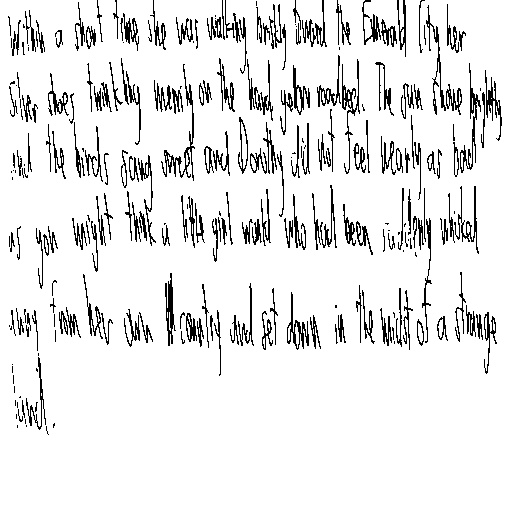 Within a short time she was walking briskly toward the Emerald City, her
silver shoes tinkling merrily on the hard, yellow roadbed. The sun shone bright
and the birds sang sweet and Dorothy did not feel nearly as bad
as you might think a little girl would who had been suddenly whisked
away from her own country and set down in the midst of a strange
land.